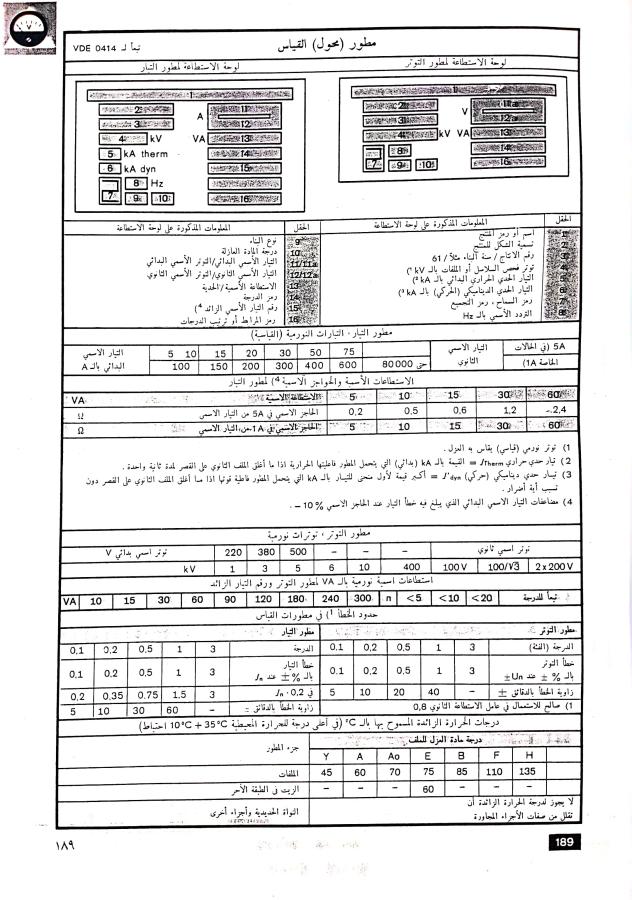 مطور (محول) القياس
تبعاً لـ VDE 0414
لوحة الاستطاعة لمطور التوتر
لوحة الاستطاعة لمطور التيار
1
2
3
4 kV
5 kA therm
6 kA dyn
7
8 Hz
9 10
A
11
12
VA 13
14
15
16
1
2
3
4 kV
7
8
9 10
V
11a
12a
VA 13
14
16
الحقل المعلومات المذكورة على لوحة الاستطاعة
1 اسم أو رمز المنتج
2 تسمية الشكل للمنتج
3 رقم الانتاج / سنة البناء مثلاً / 61
4 توتر فحص السلاسل أو الملفات بالـ kV ¹
5 التيار الحدي الحراري البدائي بالـ kA ²
6 التيار الحدي الديناميكي (الحركي) بالـ kA ³
7 رمز السماح ، رمز التجميع
8 التردد الأسمي بالـ Hz
الحقل المعلومات المذكورة على لوحة الاستطاعة
9 نوع البناء
10 درجة المادة العازلة
11/11a التيار الأسمي البدائي/التوتر الأسمي البدائي
12/12a التيار الأسمي الثانوي/التوتر الأسمي الثانوي
13 الاستطاعة الأسمية/الحدية
14 رمز الدرجة
15 رقم التيار الأسمي الزائد ⁴
16 رمز المرابط أو ترتيب الدرجات
مطور التيار ، التيارات النورمية (القياسية)
5A (في الحالات التيار الاسمي 75 50 30 20 15 10 5 التيار الاسمي
الخاصة 1A) الثانوي حتى 80 000 600 400 300 200 150 100 البدائي بالـ A
الاستطاعات الأسمية والحواجز الاسمية ⁴) لمطور التيار
VA الاستطاعة الاسمية 5 10 15 30 60
Ω الحاجز الاسمي في 5A من التيار الاسمي 0,2 0,5 0,6 1,2 2,4
Ω الحاجز الاسمي في 1A من التيار الاسمي 5 10 15 30 60
1) توتر نورمي (قياسي) يقاس به العزل .
2) تيار حدي حراري I Therm = القيمة بالـ kA (بدائي) التي يتحمل المطور فاعليتها الحرارية اذا ما أغلق الملف الثانوي على القصر لمدة ثانية واحدة .
3) تيار حدي ديناميكي (حركي) I dyn = أكبر قيمة لأول منحنى للتيار بالـ kA التي يتحمل المطور فاعلية قوتها اذا ما أغلق الملف الثانوي على القصر دون
تسبب أية أضرار .
4) مضاعفات التيار الاسمي البدائي الذي يبلغ فيه خطأ التيار عند الحاجز الاسمي % 10 – .
مطور التوتر ، توترات نورمية
توتر اسمي ثانوي – – – 500 380 220 توتر اسمي بدائي V
2 x 200 V 100/√3 100 V 400 10 6 5 3 1 kV
استطاعات اسمية نورمية بالـ VA لمطور التوتر ورقم التيار الزائد
VA 10 15 30 60 90 120 180 240 300 n <5 <10 <20 تبعاً للدرجة
حدود الخطأ ¹) في مطورات القياس
مطور التوتر
الدرجة (الفئة) 3 1 0,5 0,2 0,1
خطأ التوتر
بالـ % ± عند Un± 3 1 0,5 0,2 0,1
زاوية الخطأ بالدقائق ± – 40 20 10 5
1) صالح للاستعمال في عامل الاستطاعة الثانوي 0,8
مطور التيار
الدرجة 3 1 0,5 0,2 0,1
خطأ التيار
بالـ % ± عند Jn 3 1 0,5 0,2 0,1
في 0,2 · Jn 3 1,5 0,75 0,35 0,2
زاوية الخطأ بالدقائق ± – 60 30 10 5
درجات الحرارة الزائدة المسموح بها بالـ C° (في أعلى درجة للحرارة المحيطية 35°C + 10°C احتياط)
درجة مادة العزل للملف
جزء المطور Y A Ao E B F H
الملفات 45 60 70 75 85 110 135
الزيت في الطبقة الأخر – – – 60 – – –
النواة الحديدية وأجزاء أخرى
لا يجوز لدرجة الحرارة الزائدة أن
تقلل من صفات الأجزاء المجاورة
١٨٩
189